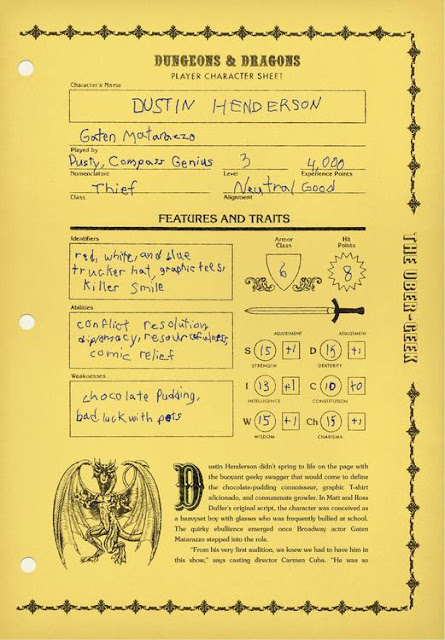 DUNGEONS & DRAGONS
PLAYER CHARACTER SHEET
Character's Name
DUSTIN HENDERSON
Gaten Matarazzo
Played by
Dusty, Compass Genius 3 4,000
Nomenclature Level Experience Points
Thief Neutral Good
Class Alignment
FEATURES AND TRAITS
Identifiers
red, white, and blue
trucker hat, graphic tees,
killer smile
Armor Class
6
Hit Points
8
Abilities
conflict resolution,
diplomacy, resourcefulness,
comic relief
Weaknesses
chocolate pudding,
bad luck with pets
ADJUSTMENT ADJUSTMENT
S 15 +1 D 15 +1
STRENGTH DEXTERITY
I 13 +1 C 10 +0
INTELLIGENCE CONSTITUTION
W 15 +1 Ch 15 +1
WISDOM CHARISMA
THE UBER-GEEK
Dustin Henderson didn't spring to life on the page with
the buoyant geeky swagger that would come to define
the chocolate-pudding connoisseur, graphic T-shirt
aficionado, and consummate growler. In Matt and Ross
Duffer's original script, the character was conceived as
a heavyset boy with glasses who was frequently bullied at school.
The quirky ebullience emerged once Broadway actor Gaten
Matarazzo stepped into the role.
"From his very first audition, we knew we had to have him in
this show," says casting director Carmen Cuba. "He was so